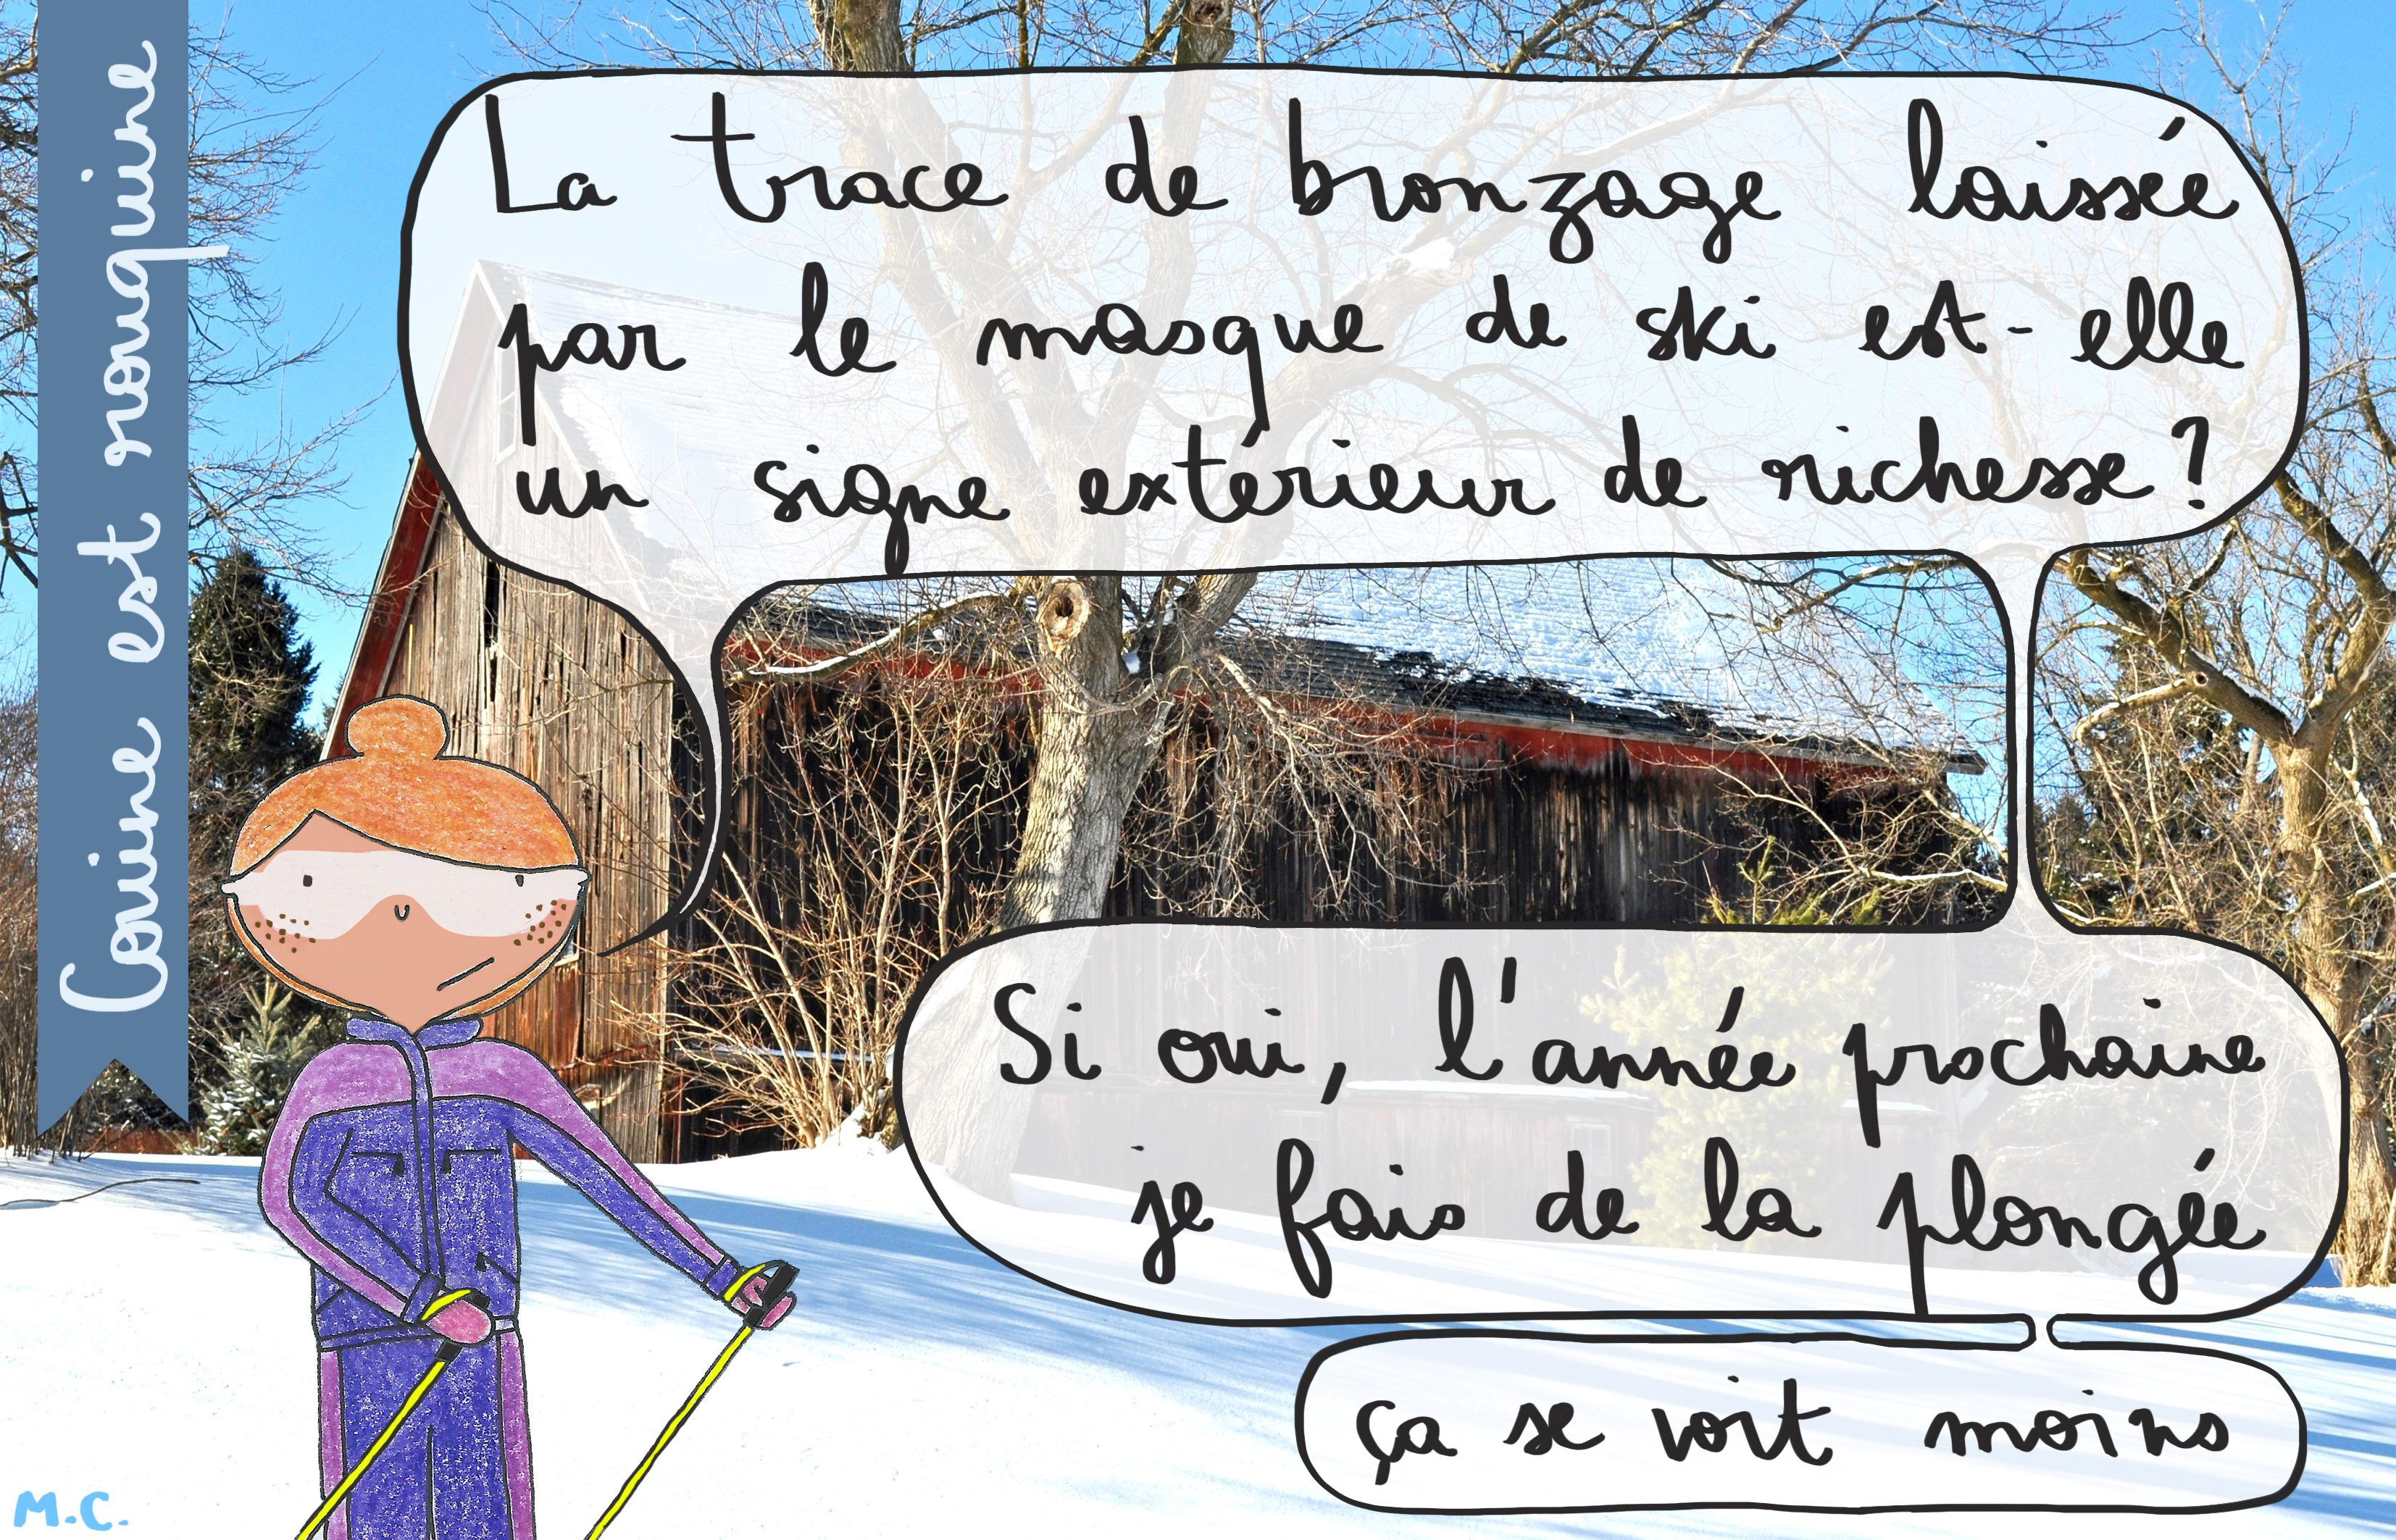 Couine est rouquine
La trace de bronzage laissée
par le masque de ski est-elle
un signe extérieur de richesse ?
Si oui, l'année prochaine
je fais de la plongée
ça se voit moins
M.C.